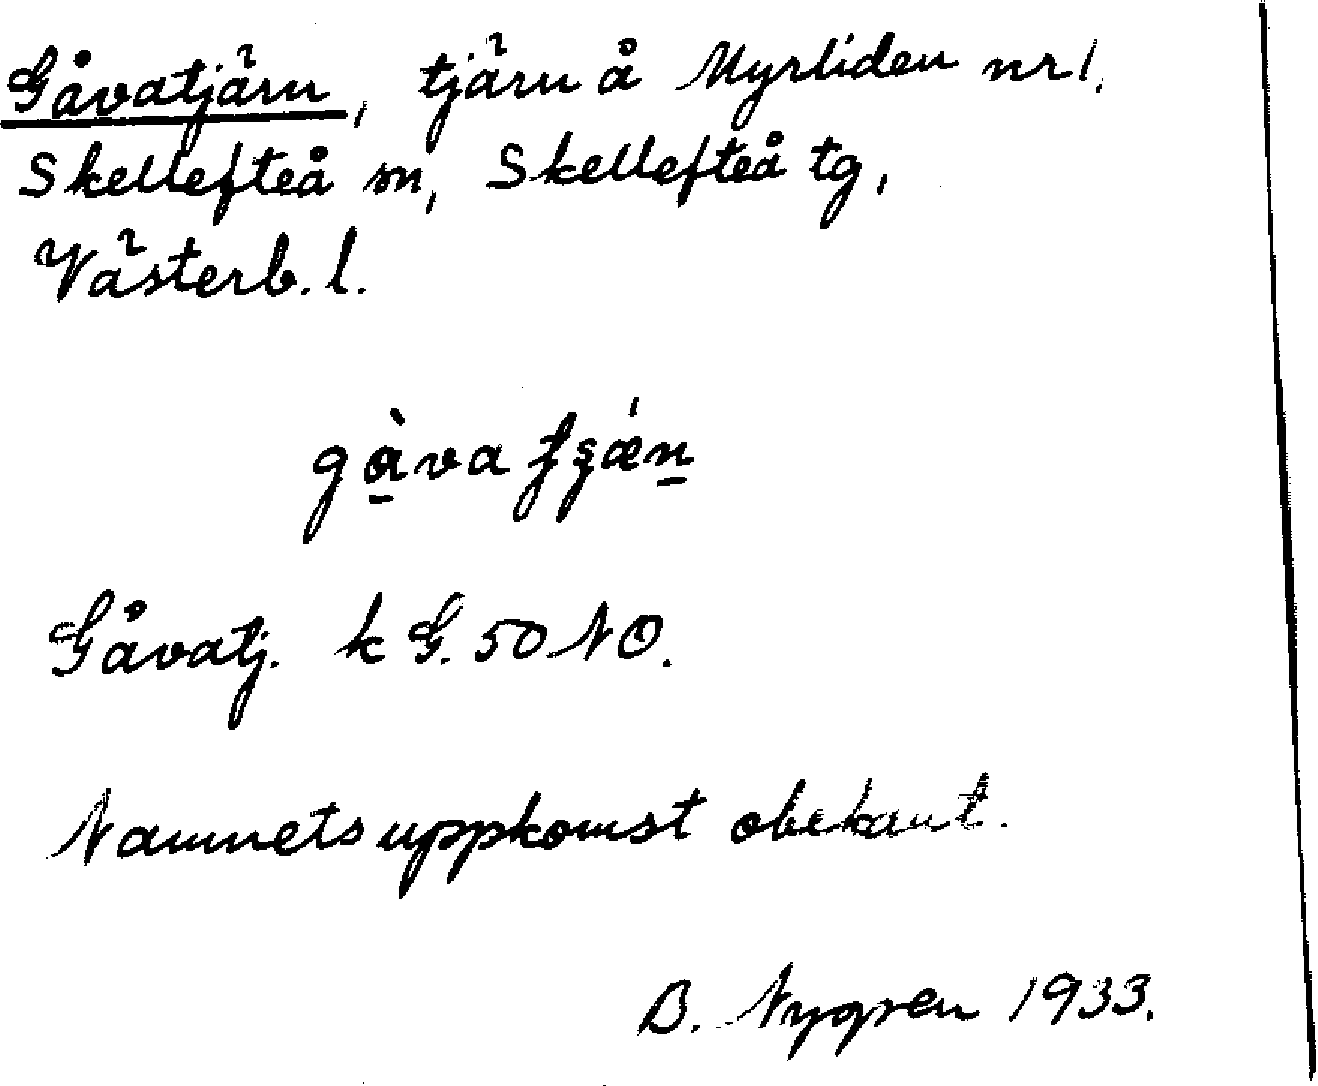 Gåvatjärn, tjärn å Myrliden nr 1.
Skellefteå sn, Skellefteå tg,
Västerb. l.
gàva
Gåvatj. k G. 50 NO.
Namnets uppkomst obekant.
B. Nygren 1933.